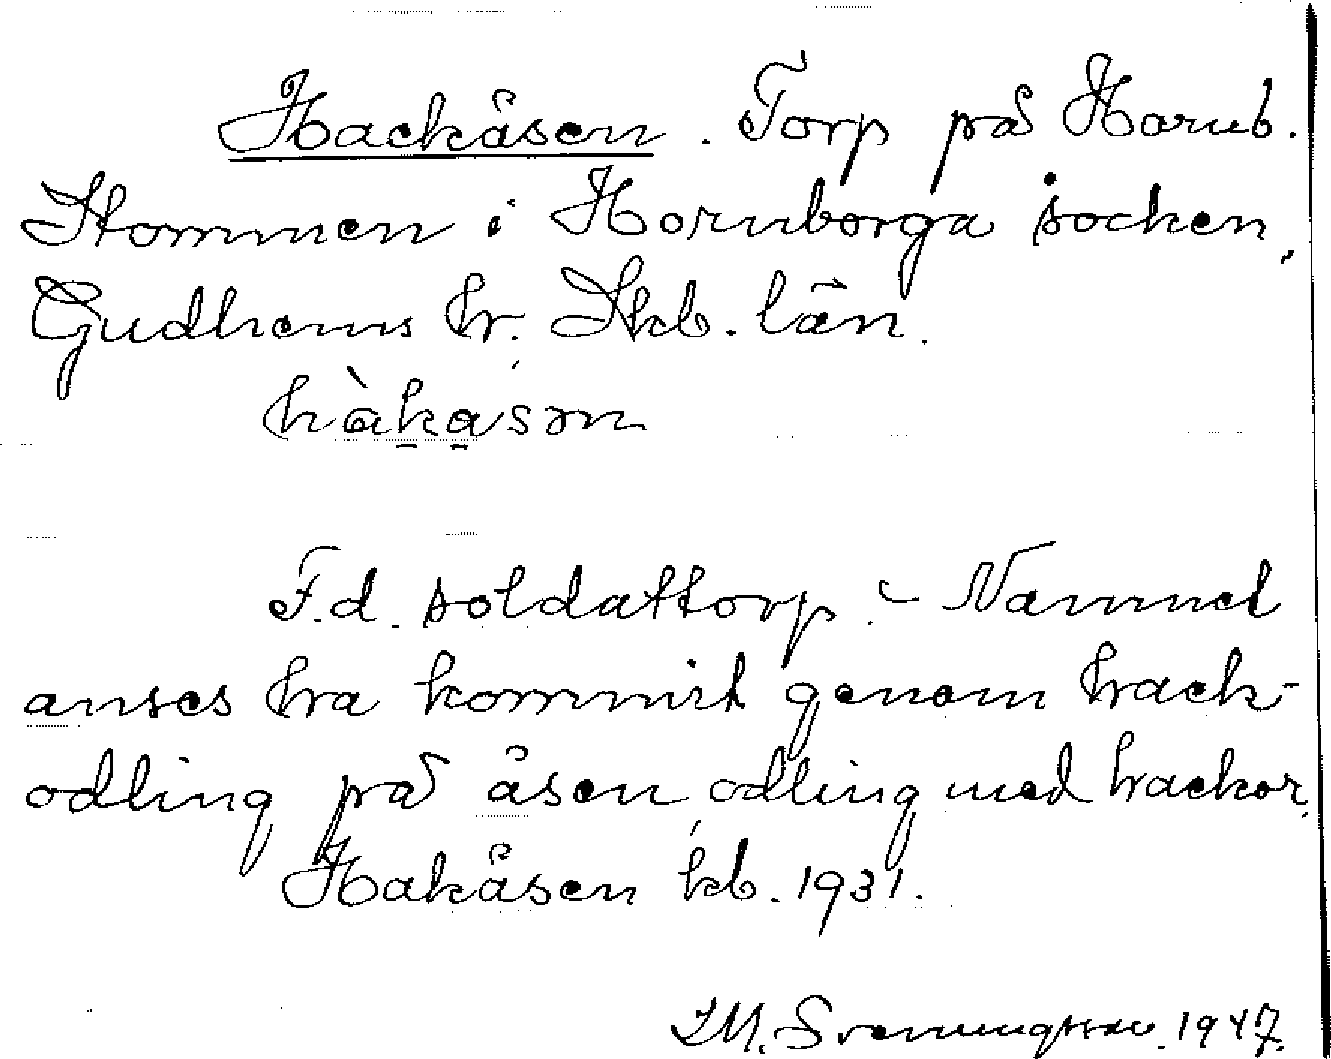 Hackåsen. Torp på Hornb.
Kommen i Hornborga socken,
Gudhems hr. Skb. län.
hàkåsən
F.d. soldattorp. - Namnet
anses ha kommit genom hack-
odling på åsen, odling med hackor.
Hakåsen kb. 1931.
J.M. Svenningsson. 1947.